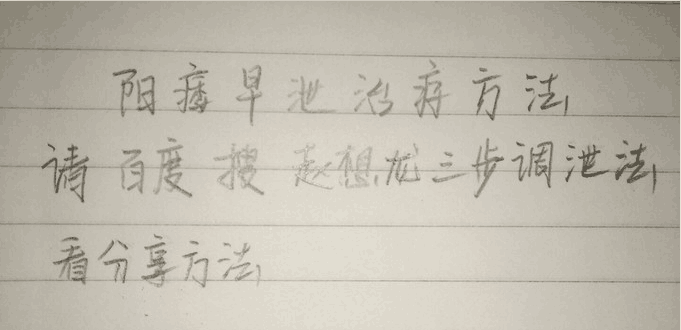 阳痿早泄治疗方法
请百度搜赵想龙三步调泄法
看分享方法